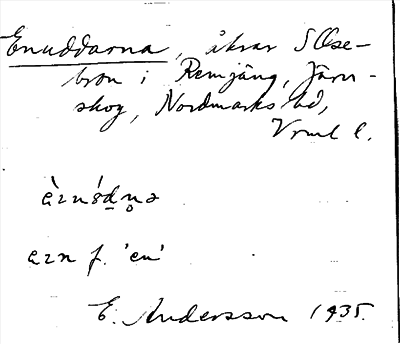 Enuddarna, åkrar S Olse-
bron i Remjäng, Järn-
skog, Nordmarks hd,
Vrml l.
ɛ̀znʹódn̥ə
ɛzn f. 'en'
E. Andersson 1935.